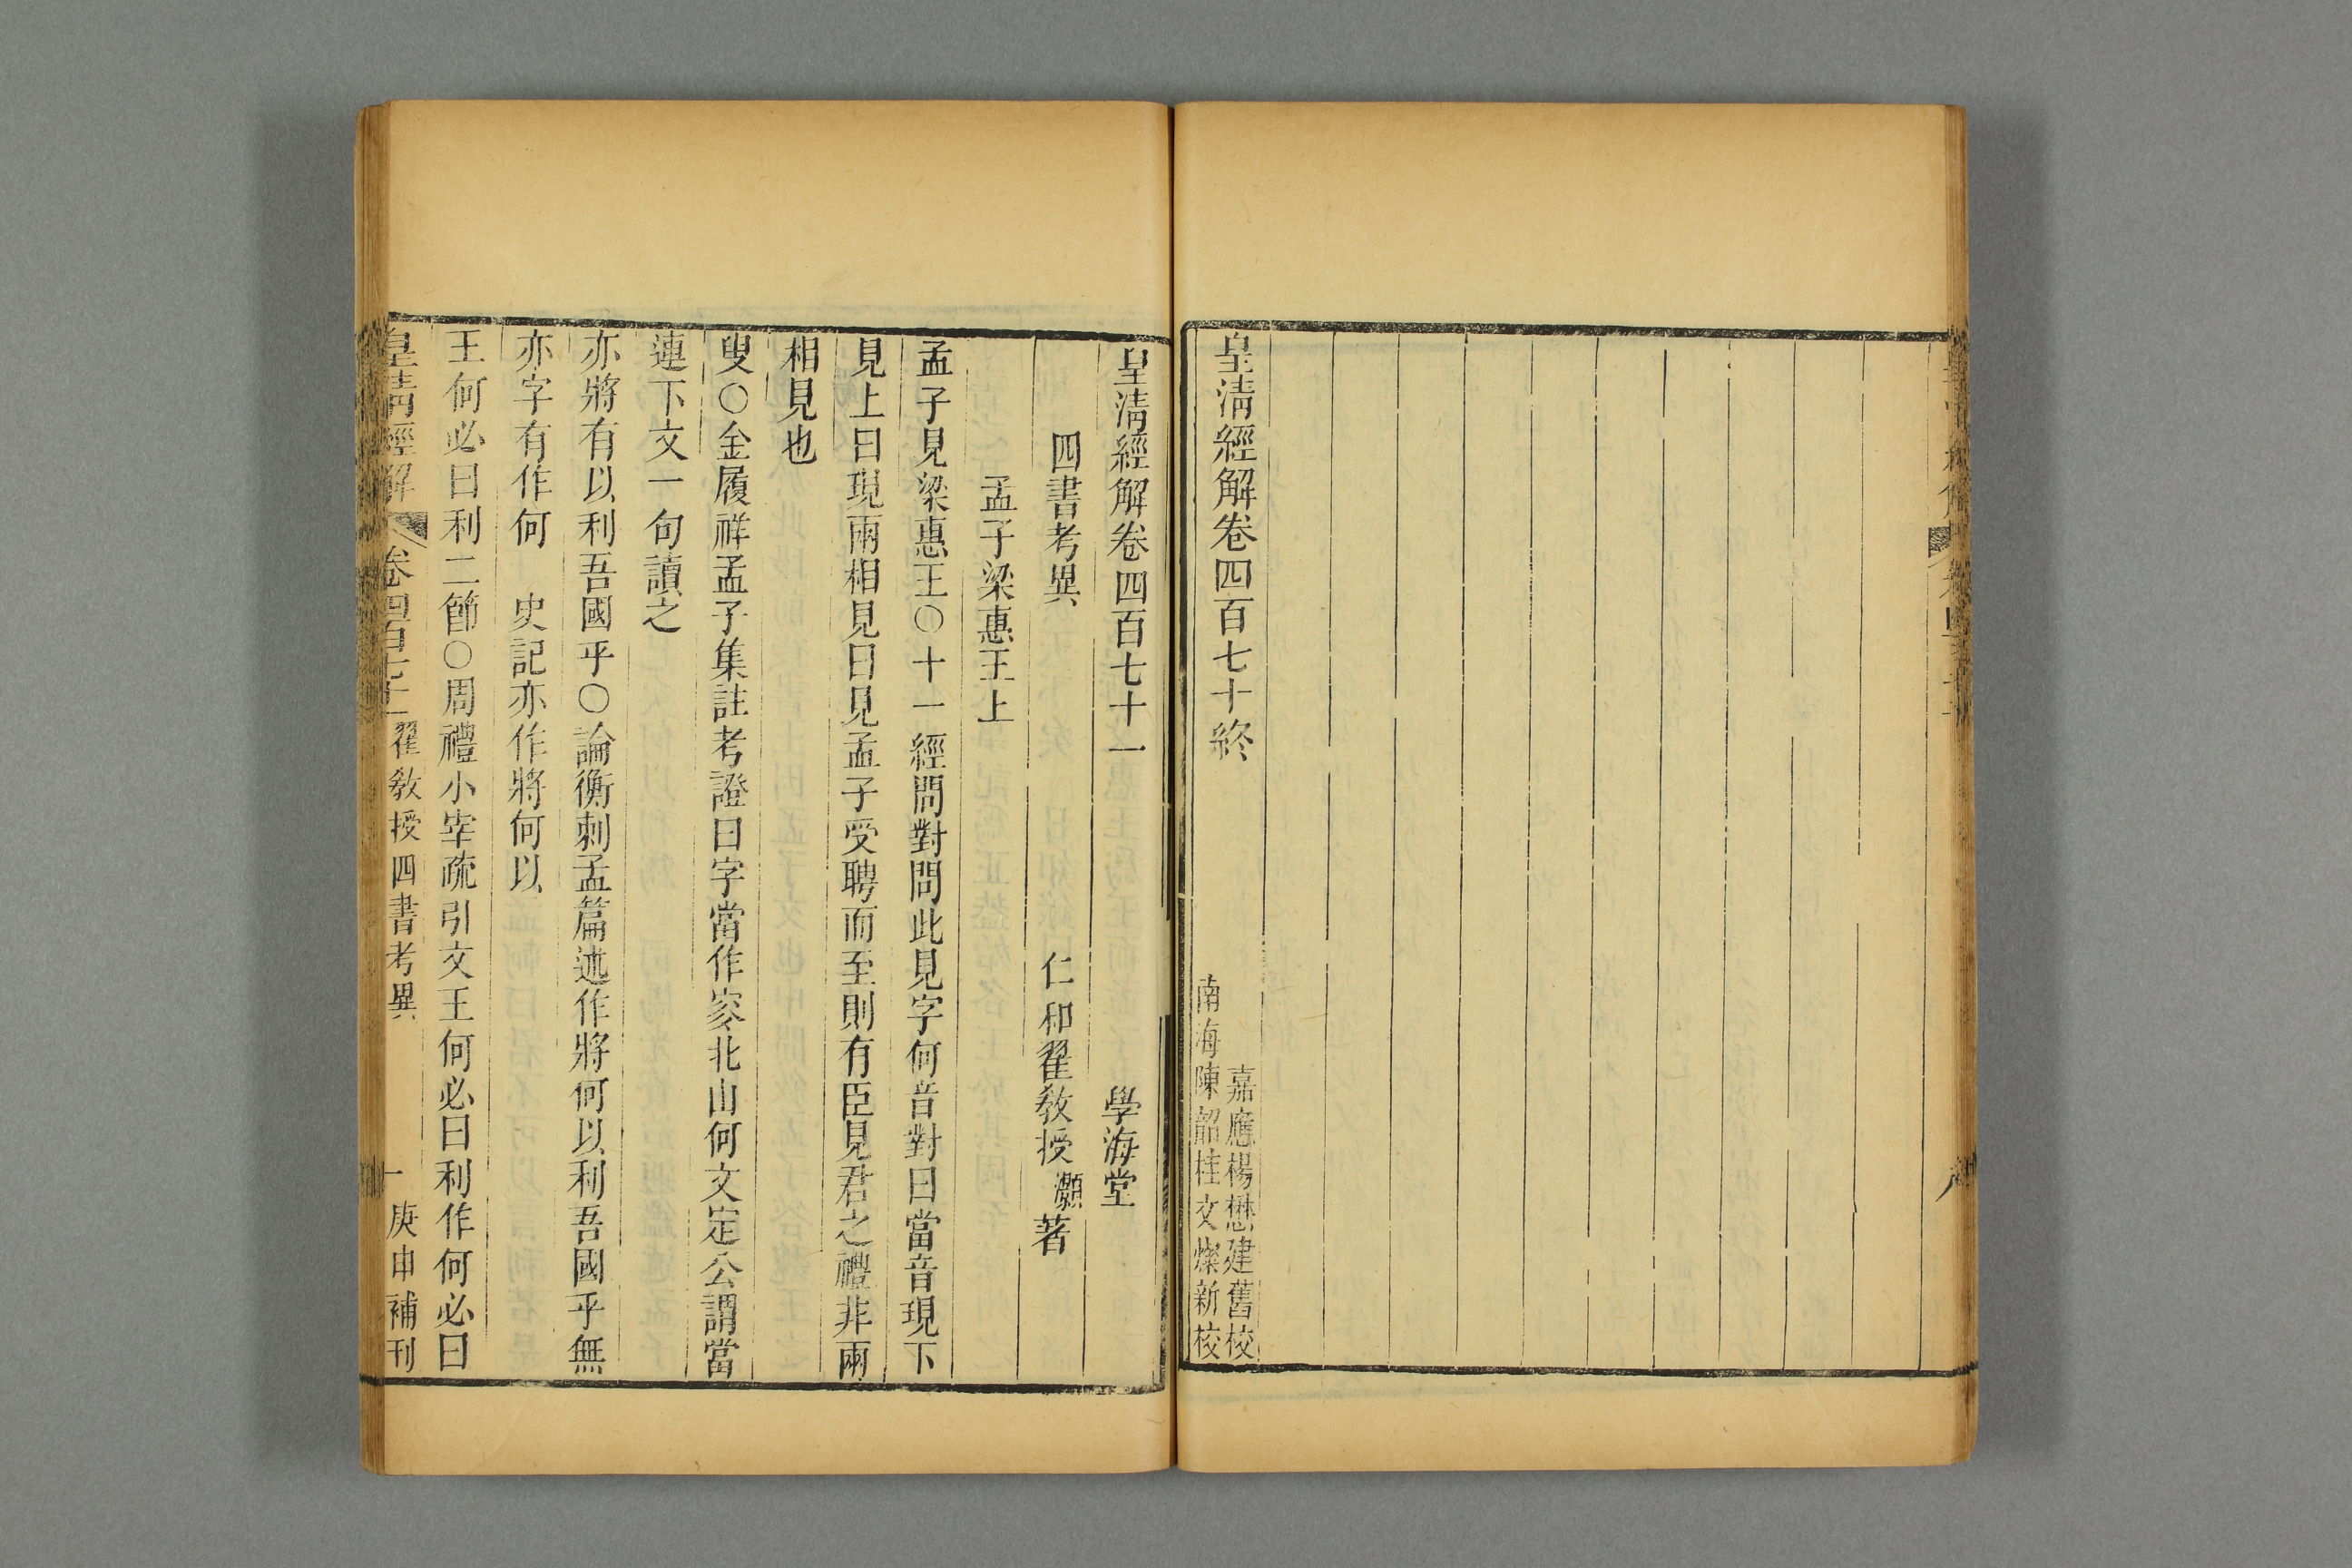 皇淸經解卷四百七十終
嘉應楊懋建舊校
南海陳韶桂文燦新校
皇淸經解卷四百七十一
學海堂
四書考異
仁和翟敎授灝著
孟子梁惠王上
孟子見梁惠王○十一經問對問此見字何音對曰當音現下
見上曰現兩相見曰見孟子受聘而至則有臣見君之禮非兩
相見也
叟○金履祥孟子集註考證曰字當作叜北山何文定公謂當
連下文一句讀之
亦將有以利吾國乎○論衡刺孟篇述作將何以利吾國乎無
亦字有作何 史記亦作將何以
王何必曰利二節○周禮小宰疏引文王何必曰利作何必曰
皇淸經解
卷四百七十一
翟敎授四書考異
一
庚申補刊